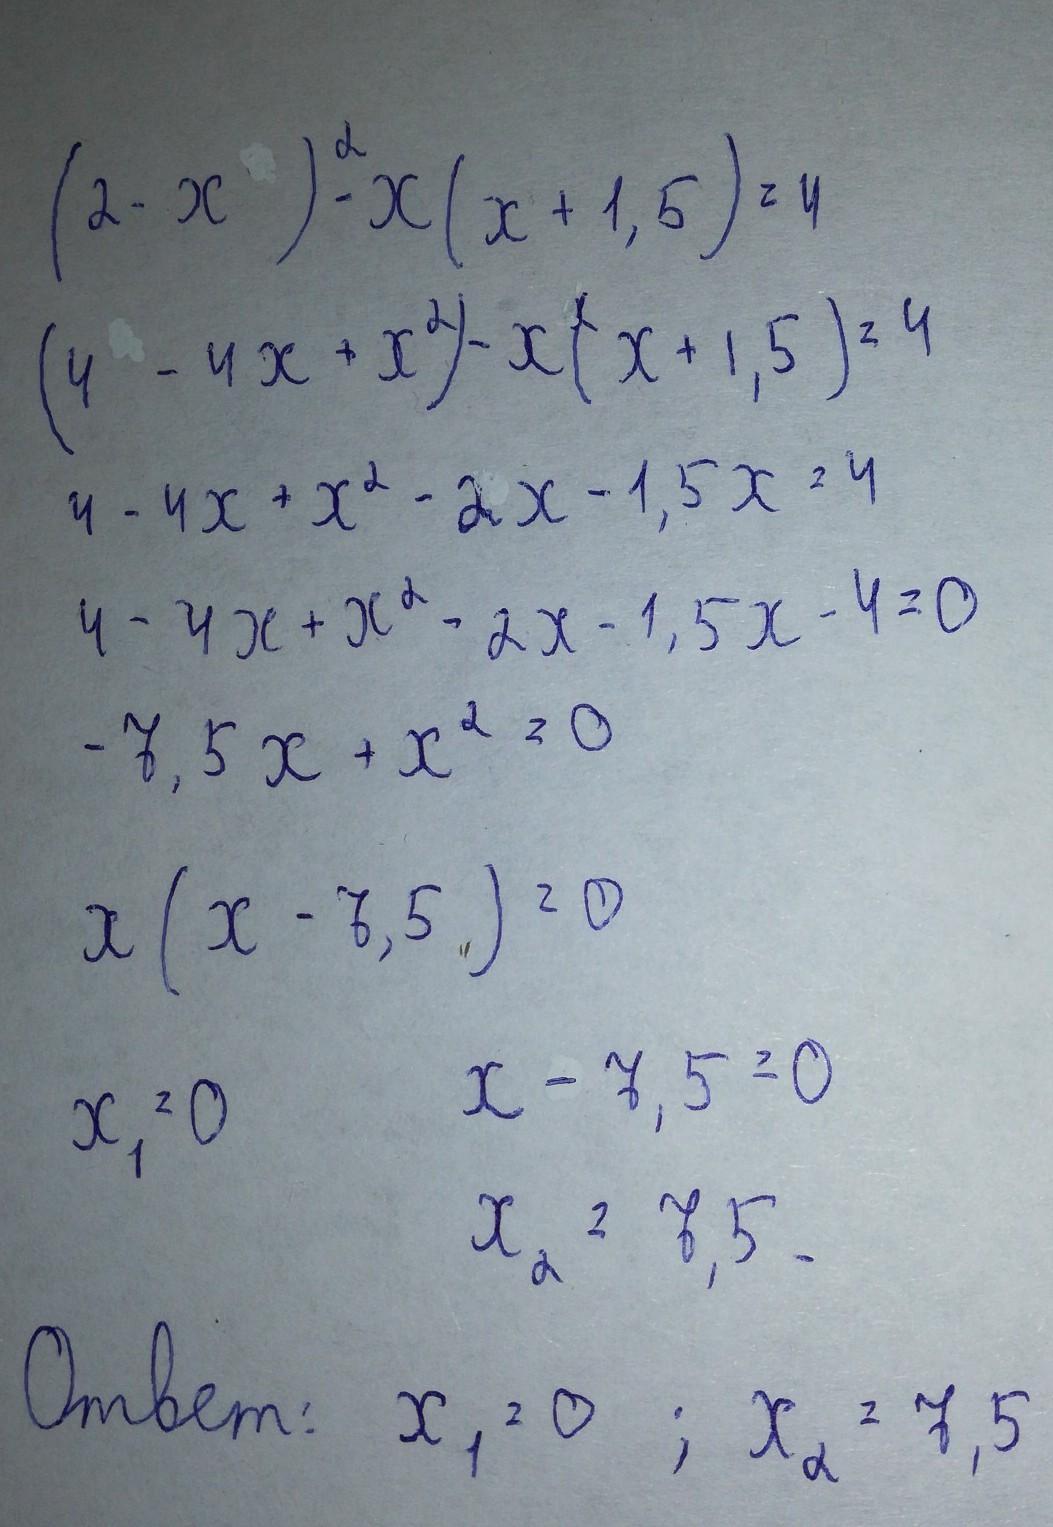 (2 - x)² - x(x + 1,5) = 4
(4 - 4x + x²) - x(x + 1,5) = 4
4 - 4x + x² - 2x - 1,5x = 4
4 - 4x + x² - 2x - 1,5x - 4 = 0
-7,5x + x² = 0
x(x - 7,5) = 0
x₁ = 0 x - 7,5 = 0
x₂ = 7,5.
Ответ: x₁ = 0 ; x₂ = 7,5